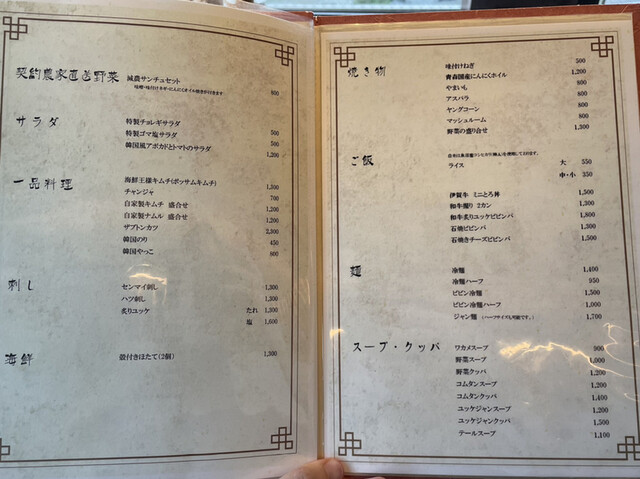 契約農家直送野菜 減農サンチュセット 800
サラダ
特製チョレギサラダ 500
特製ゴマ塩サラダ 500
韓国風アボカドとトマトのサラダ 1,200
一品料理
海鮮王様キムチ(ポッサムキムチ) 1,500
チャンジャ 700
自家製キムチ 盛合せ 1,200
自家製ナムル 盛合せ 1,200
ザブトンカツ 2,300
韓国のり 450
韓国やっこ 800
刺し
センマイ刺し 1,300
ハツ刺し 1,300
炙りユッケ たれ 1,500
塩 1,600
海鮮
殻付きほたて(2個) 1,300
焼き物
味付けねぎ 500
青森国産にんにくホイル 1,200
やまいも 800
アスパラ 800
ヤングコーン 800
マッシュルーム 800
野菜の盛り合せ 1,300
ご飯
ライス 大 550
中・小 350
伊賀牛 ミニとろ丼 1,500
和牛握り 2カン 1,300
和牛炙りユッケビビンバ 1,800
石焼ビビンバ 1,300
石焼きチーズビビンバ 1,500
麺
冷麺 1,400
冷麺ハーフ 950
ビビン冷麺 1,500
ビビン冷麺ハーフ 1,000
ジャン麺 (ハーフサイズも可能です。) 1,700
スープ・クッパ
ワカメスープ 900
野菜スープ 1,000
野菜クッパ 1,200
コムタンスープ 1,200
コムタンクッパ 1,400
ユッケジャンスープ 1,200
ユッケジャンクッパ 1,500
テールスープ 1,100